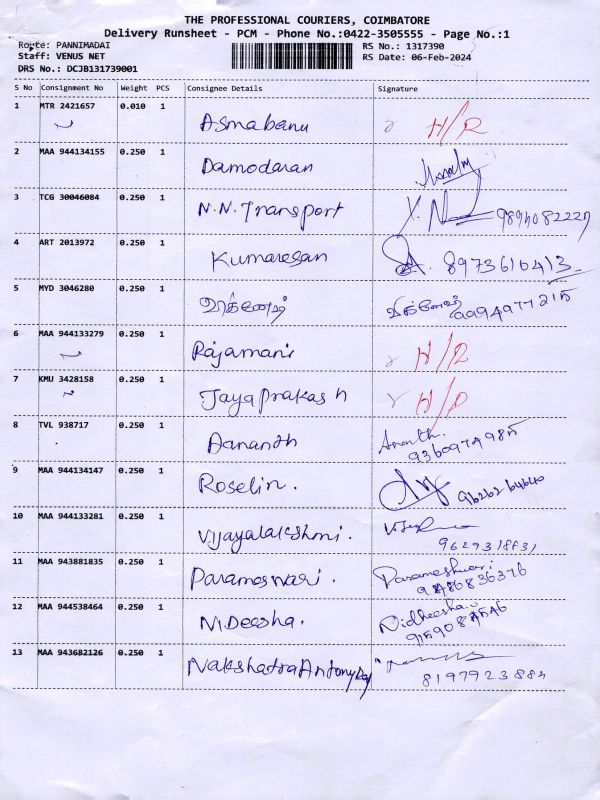 THE PROFESSIONAL COURIERS, COIMBATORE
Delivery Runsheet - PCM - Phone No.:0422-3505555 - Page No.:1
Route: PANNIMADAI RS No.: 1317390
Staff: VENUS NET RS Date: 06-Feb-2024
DRS No.: DCJB131739001
S No Consignment No Weight PCS Consignee Details Signature
1 MTR 2421657 0.010 1 Asmabanu H/R
2 MAA 944134155 0.250 1 Damodaran
3 TCG 30046084 0.250 1 N.N. Transport 9894082227
4 ART 2013972 0.250 1 Kumaresan 8973610413
5 MYD 3046280 0.250 1
6 MAA 944133279 0.250 1 Rajamani H/R
7 KMU 3428158 0.250 1 Jayaprakash
8 TVL 938717 0.250 1 Aananth Ananth.
9 MAA 944134147 0.250 1 Roselin. 96262 64640
10 MAA 944133281 0.250 1 Vijayalakshmi.
11 MAA 943881835 0.250 1 Parameswari. Parameshwari
12 MAA 944538464 0.250 1 Ni.Deesha. Nidheesha.
13 MAA 943682126 0.250 1 Nakshatra Antony
8197923884